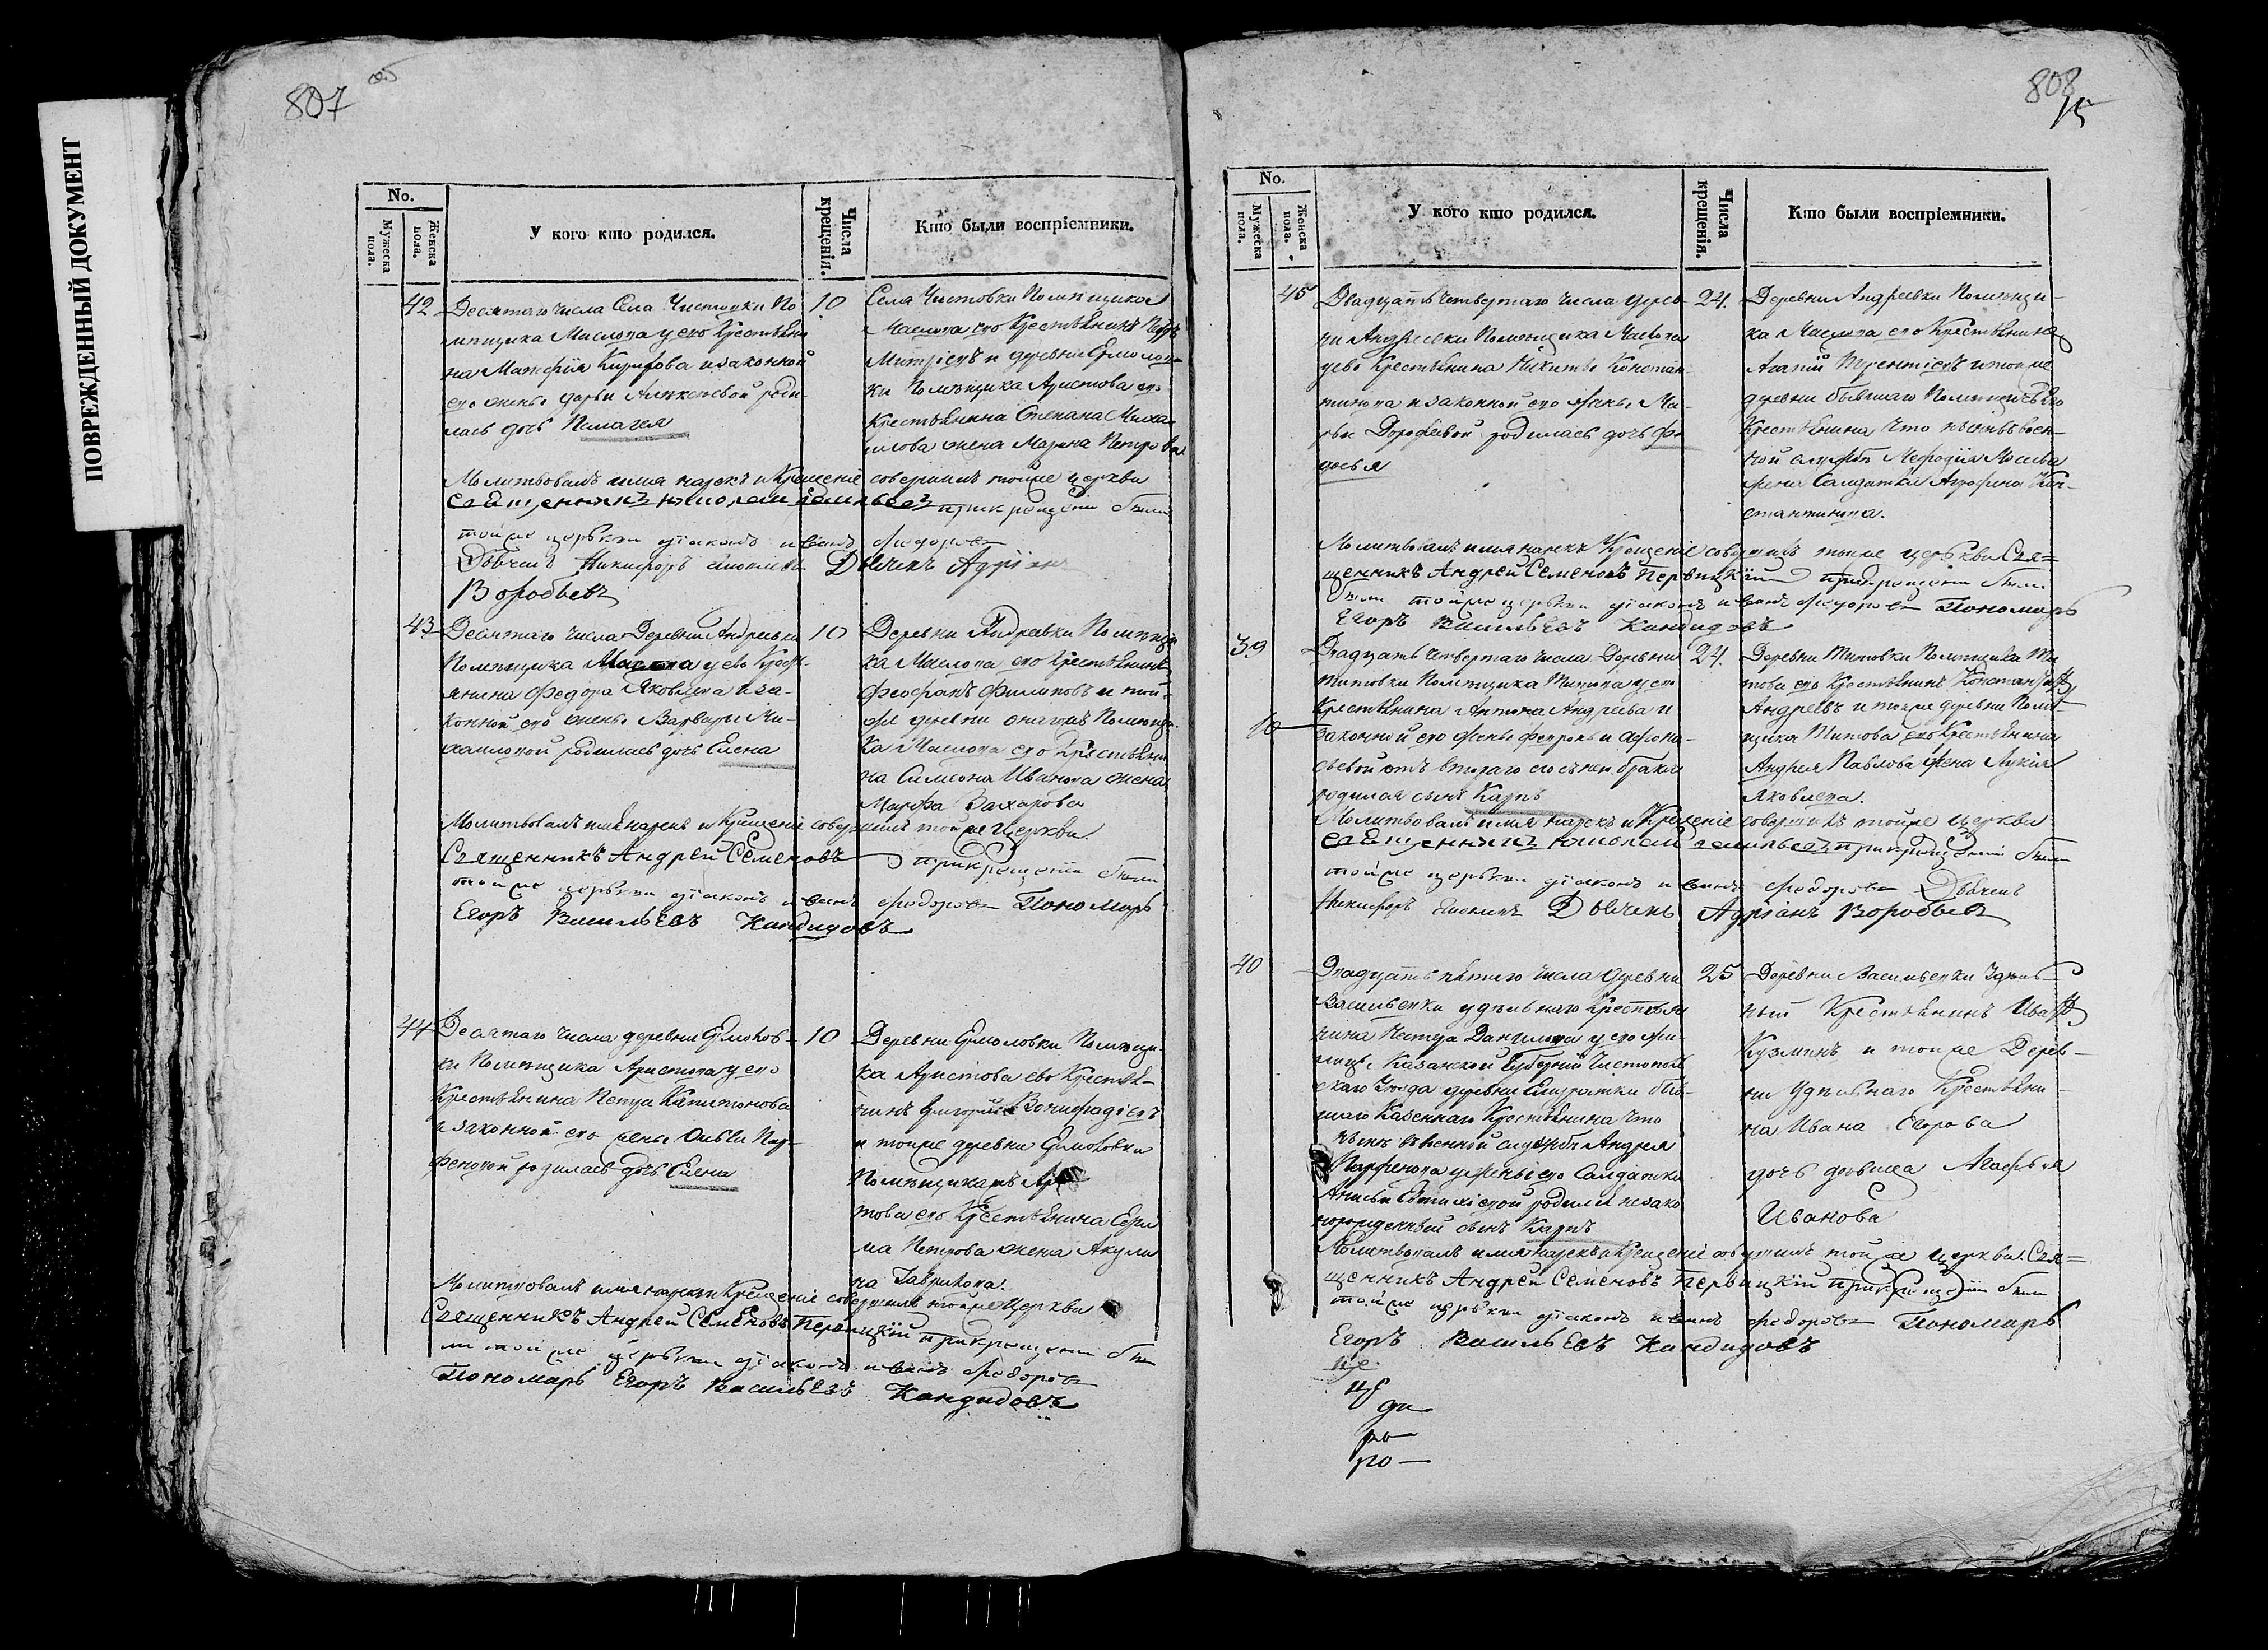 ПОВРЕЖДЕННЫЙ ДОКУМЕНТ
807 об
No.
Мужеска пола.
Женска пола.
У кого кто родился.
Числа крещенія.
Кто были воспріемники.
42
Десятаго числа Села Чистовки По
мѣщика Маслова у его Крестьяни
на Кирилова и законной
его жены Дарьи Алексѣевой роди-
лась дочь Пелагея
10
Села Чистовки Помѣщика
Маслова его Крестьянинъ Петръ
и деревни Ермолов-
ки Помѣщика Аристова его
Крестьянина Степана Миха-
илова жена Марина Петрова
Молитвовалъ имя нарекъ и Крещеніе совершилъ тойже церкви
Священникъ при крещеніи были
тойже церкви діаконъ Иванъ Федоровъ
Дьячекъ Никифоръ Дьячекъ Адріанъ
Воробьевъ
43
Десятаго числа Деревни Андреевки
Помѣщика Маслова у его Крест-
янина Федора Яковлева и за-
конной его жены Варвары Ми-
хайловой родилась дочь Елена
10
Деревни Андреевки Помѣщи
ка Маслова его Крестьянинъ
Феофанъ Филиповъ и той-
же деревни онагожъ Помѣщи
ка Маслова его Крестьяни
на Симеона Иванова жена
Марфа Захарова
Молитвовалъ имя нарекъ и Крещеніе совершилъ тойже Церкви
Священникъ Андрей Семеновъ при крещеніи были
тойже церкви діаконъ Иванъ Федоровъ Пономарь
Егоръ Васильевъ Кандидовъ
44
Десятаго числа деревни Ермолов-
ки Помѣщика Аристова у его
Крестьянина Петра Капитонова
и законной его жены Ольги Пар-
феновой родилась дочь Елена
10
Деревни Ермоловки Помѣщи-
ка Аристова его Крестья-
нинъ Григорій
и тойже деревни Ермоловки
Помѣщика
това его Крестьянина
Петрова жена Акули
на Гаврилова.
Молитвовалъ имя нарекъ и Крещеніе совершилъ тойже Церкви
Священникъ Андрей Семеновъ Первицкій при крещеніи бы
ли тойже церкви діаконъ Иванъ Федоровъ
Пономарь Егоръ Васильевъ Кандидовъ
808
No.
Мужеска пола.
Женска пола.
У кого кто родился.
Числа крещенія.
Кто были воспріемники.
45
Двадцать четвертаго числа дерев-
ни Андреевки Помѣщика Маслова
у его Крестьянина Никиты Констан-
тинова и законной его жены Ма-
рьи Дорофѣевой родилась дочь Фе
досья
24.
Деревни Андреевки Помѣщи-
ка Маслова его Крестьянинъ
Терентіевъ и тойже
деревни бывшаго Помѣщичьяго
Крестьянина что нынѣ въ воен-
ной службѣ Мефодія
жена Салдатка Агрофина Кон-
стантинова.
Молитвовалъ имя нарекъ Крещеніе совершилъ тойже церкви Свя=
щенникъ Андрей Семеновъ Первицкій при крещеніи были
были тойже церкви діаконъ Иванъ Федоровъ Пономарь
Егоръ Васильевъ Кандидовъ
39
Двадцать четвертаго числа Деревни
Титовки Помѣщика Титова у его
Крестьянина Антона Андреева и
законной его жены Февроньи Афона-
сьевой отъ втораго его съ нею брака
родился сынъ Карпъ
24.
Деревни Титовки Помѣщика Ти
това его Крестьянинъ Константинъ
Андреевъ и тойже деревни Помѣ-
щика Титова его Крестьянина
Андрея Павлова жена Лукія
Яковлева.
Молитвовалъ имя нарекъ и Крещеніе совершилъ тойже церкви
Священникъ при крещеніи были
тойже церкви діаконъ Иванъ Федоровъ Дьячекъ
Никифоръ Дьячекъ Адріанъ Воробьевъ
40
Двадцать пятаго числа Деревни
Васильевки удѣльнаго Крестьяни
нина Нестера Данилова у его
Казанской Губерніи Чистополь
скаго Уѣзда деревни быв-
шаго Казеннаго Крестьянина что
нынѣ въ военной службѣ Андрея
Парфенова у жены его Салдатки
Анисьи Евтихіевой родился незако
норожденный сынъ Карпъ
25
Деревни Васильевки Удѣль-
ный Крестьянинъ Иванъ
Кузминъ и тойже Дерев-
ни Удѣльнаго Крестьяни-
на Ивана Егорова
дочь дѣвица Агафья
Иванова
Молитвовалъ имя нарекъ и Крещеніе совершилъ тойже церкви Свя=
щенникъ Андрей Семеновъ Первицкій при крещеніи были
тойже церкви діаконъ Иванъ Федоровъ Пономарь
Егоръ Васильевъ Кандидовъ